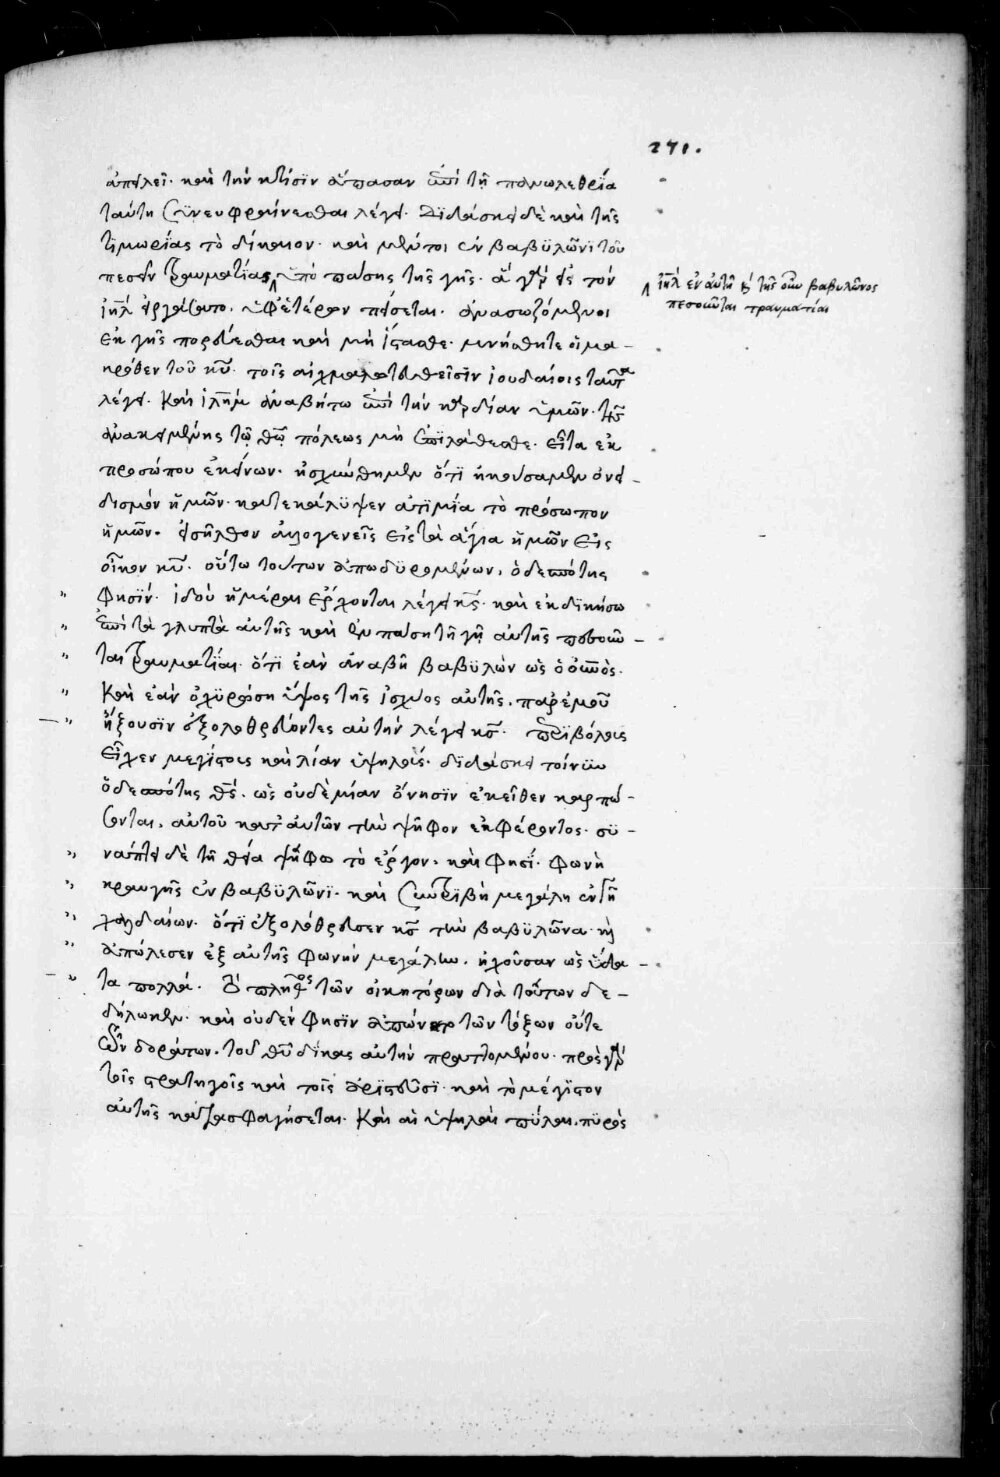 271.
ἀπειλεῖ. καὶ τὴν κτίσϊν ἅπασαν ἐπὶ τῇ πανωλεθρία
ταύτη συνευφραίνεσθαι λέγει. Διδάσκει δὲ καὶ τῆς
τιμωρίας τὸ δίκαιον. καὶ μέντοι ἐν βαβϋλῶνϊ τοῦ
πεσεῖν τραυματίας ἀπὸ πάσης τῆς γῆς. ἃ γὰρ εἰς τὸν
ἰηλ̅ εἰργάσατο, ὑφ' ἑτέρων πείσεται. ἀνασωζόμενοι
ἐκ γῆς πορεύεσθαι καὶ μὴ ἵστασθε. μνήσθητε οἱ μα-
κρόθεν τοῦ κυ̅. τοῖς αἰχμαλωτευθεῖσϊν ἰουδαίοις ταῦτα
λέγει. Καὶ ἱλημ̅ ἀναβήτω ἐπὶ τὴν καρδίαν ὑμῶν. τῆς
ἀνακειμένης τῷ θῶ̅ πόλεως μὴ ἐπϊλάθεσθε. εἶτα ἐκ
προσώπου ἐκείνων. ἠσχύνθημεν ὅτϊ ἠκούσαμεν ὀνει-
δισμὸν ἡμῶν. κατεκάλϋψεν ἀτϊμία τὸ πρόσωπον
ἡμῶν. εἰσῆλθον ἀλλογενεῖς εἰς τὰ ἅγια ἡμῶν εἰς
οἶκον κυ̅. οὕτω τούτων ἀποδϋρομένων, ὁ δεσπότης
" φησΐν. ἰδοὺ ἡμέραι ἔρχονται λέγει κς̅. καὶ ἐκδϊκήσω
" ἐπὶ τὰ γλυπτὰ αὐτῆς καὶ ἐν πάση τῆ γῆ αὐτῆς πεσοῦν-
" ται τραυματΐαι. ὅτϊ ἐὰν ἀναβῆ βαβϋλὼν ὡς ὁ οὐνος.
" Καὶ ἐὰν ὀχϋρώση ὕψος τῆς ἰσχύος αὐτῆς, παρ' ἐμοῦ
" ἥξουσϊν ἐξολοθρεύοντες αὐτὴν λέγει κς̅. περϊβόλοις
εἶχεν μεγίστοις καὶ λίαν ὑψηλοῖς. διδάσκει τοίνυν
ὁ δεσπότης θς̅. ὡς οὐδεμίαν ὄνησϊν ἐκεῖθεν καρπώ-
σονται, αὐτοῦ κατ' αὐτῶν τὴν ψῆφον ἐκφέροντος. συ-
" νάπτει δὲ τῆ θεία ψήφω τὸ ἔργον. καὶ φησΐ. φωνὴ
" κραυγῆς ἐν βαβϋλῶνϊ. καὶ συντρϊβὴ μεγάλη ἐν γῆ
" χαλδαίων. ὅτϊ ἐξολόθρευσεν κς̅ τὴν βαβϋλῶνα. καὶ
" ἀπώλεσεν ἐξ αὐτῆς φωνὴν μεγάλην, ἠχοῦσαν ὡς ὕδα-
" τα πολλά. Τὸ πλῆθος τῶν οἰκητόρων διὰ τούτων δε-
δήλωκεν. καὶ οὐδὲν φησϊν ἀπώναντο τῶν τόξων οὔτε
τῶν δοράτων. τοῦ θυ̅ δίκας αὐτὴν πραττομένου. πρὸς γὰρ
τοῖς στρατηγοῖς καὶ τοῖς ἀρϊστεῦσϊ. καὶ τὸ μέγϊστον
αὐτῆς κατασφαγήσεται. Καὶ αἱ ὑψηλαὶ πύλαι, πϋρὸς
ἰηλ̅ ἐν αὐτῆ καὶ τῆς οὖν βαβυλῶνος
πεσοῦνται τραυματίαι